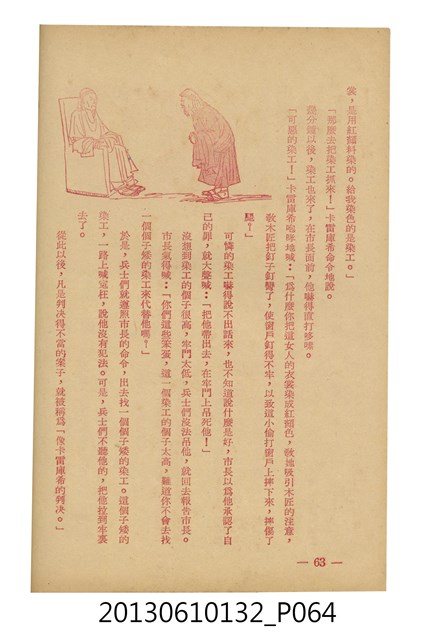 裳，是用紅顏料染的。給我染色的是染工。」
「那麼去把染工抓來！」卡雷庫希命令地說。
幾分鐘以後，染工也來了，在市長面前，他嚇得直打哆嗦。
「可惡的染工！」卡雷庫希咆哮地喊：「爲什麼你把這女人的衣裳染成紅顏色，敎她吸引木匠的注意，
敎木匠把釘子釘彎了，使窗戶釘得不牢，以致這小偷打窗戶上摔下來，摔傷了
腿？」
可憐的染工嚇得說不出話來，也不知道說什麼是好，市長以爲他承認了自
己的罪，就大聲喊：「把他帶出去，在牢門上吊死他！」
沒想到染工的個子很高，牢門太低，兵士們沒法吊他，就回去報告市長。
市長氣得喊：「你們這些笨蛋，這一個染工的個子太高，難道你不會去找
一個個子矮的染工來代替他嗎？」
於是，兵士們就遵照市長的命令，出去找一個個子矮的染工。這個子矮的
染工，一路上喊冤枉，說他沒有犯法。可是，兵士們不聽他的，把他拉到牢裏
去了。
從此以後，凡是判決得不當的案子，就被稱爲「像卡雷庫希的判决。」
— 63 —
20130610132_P064